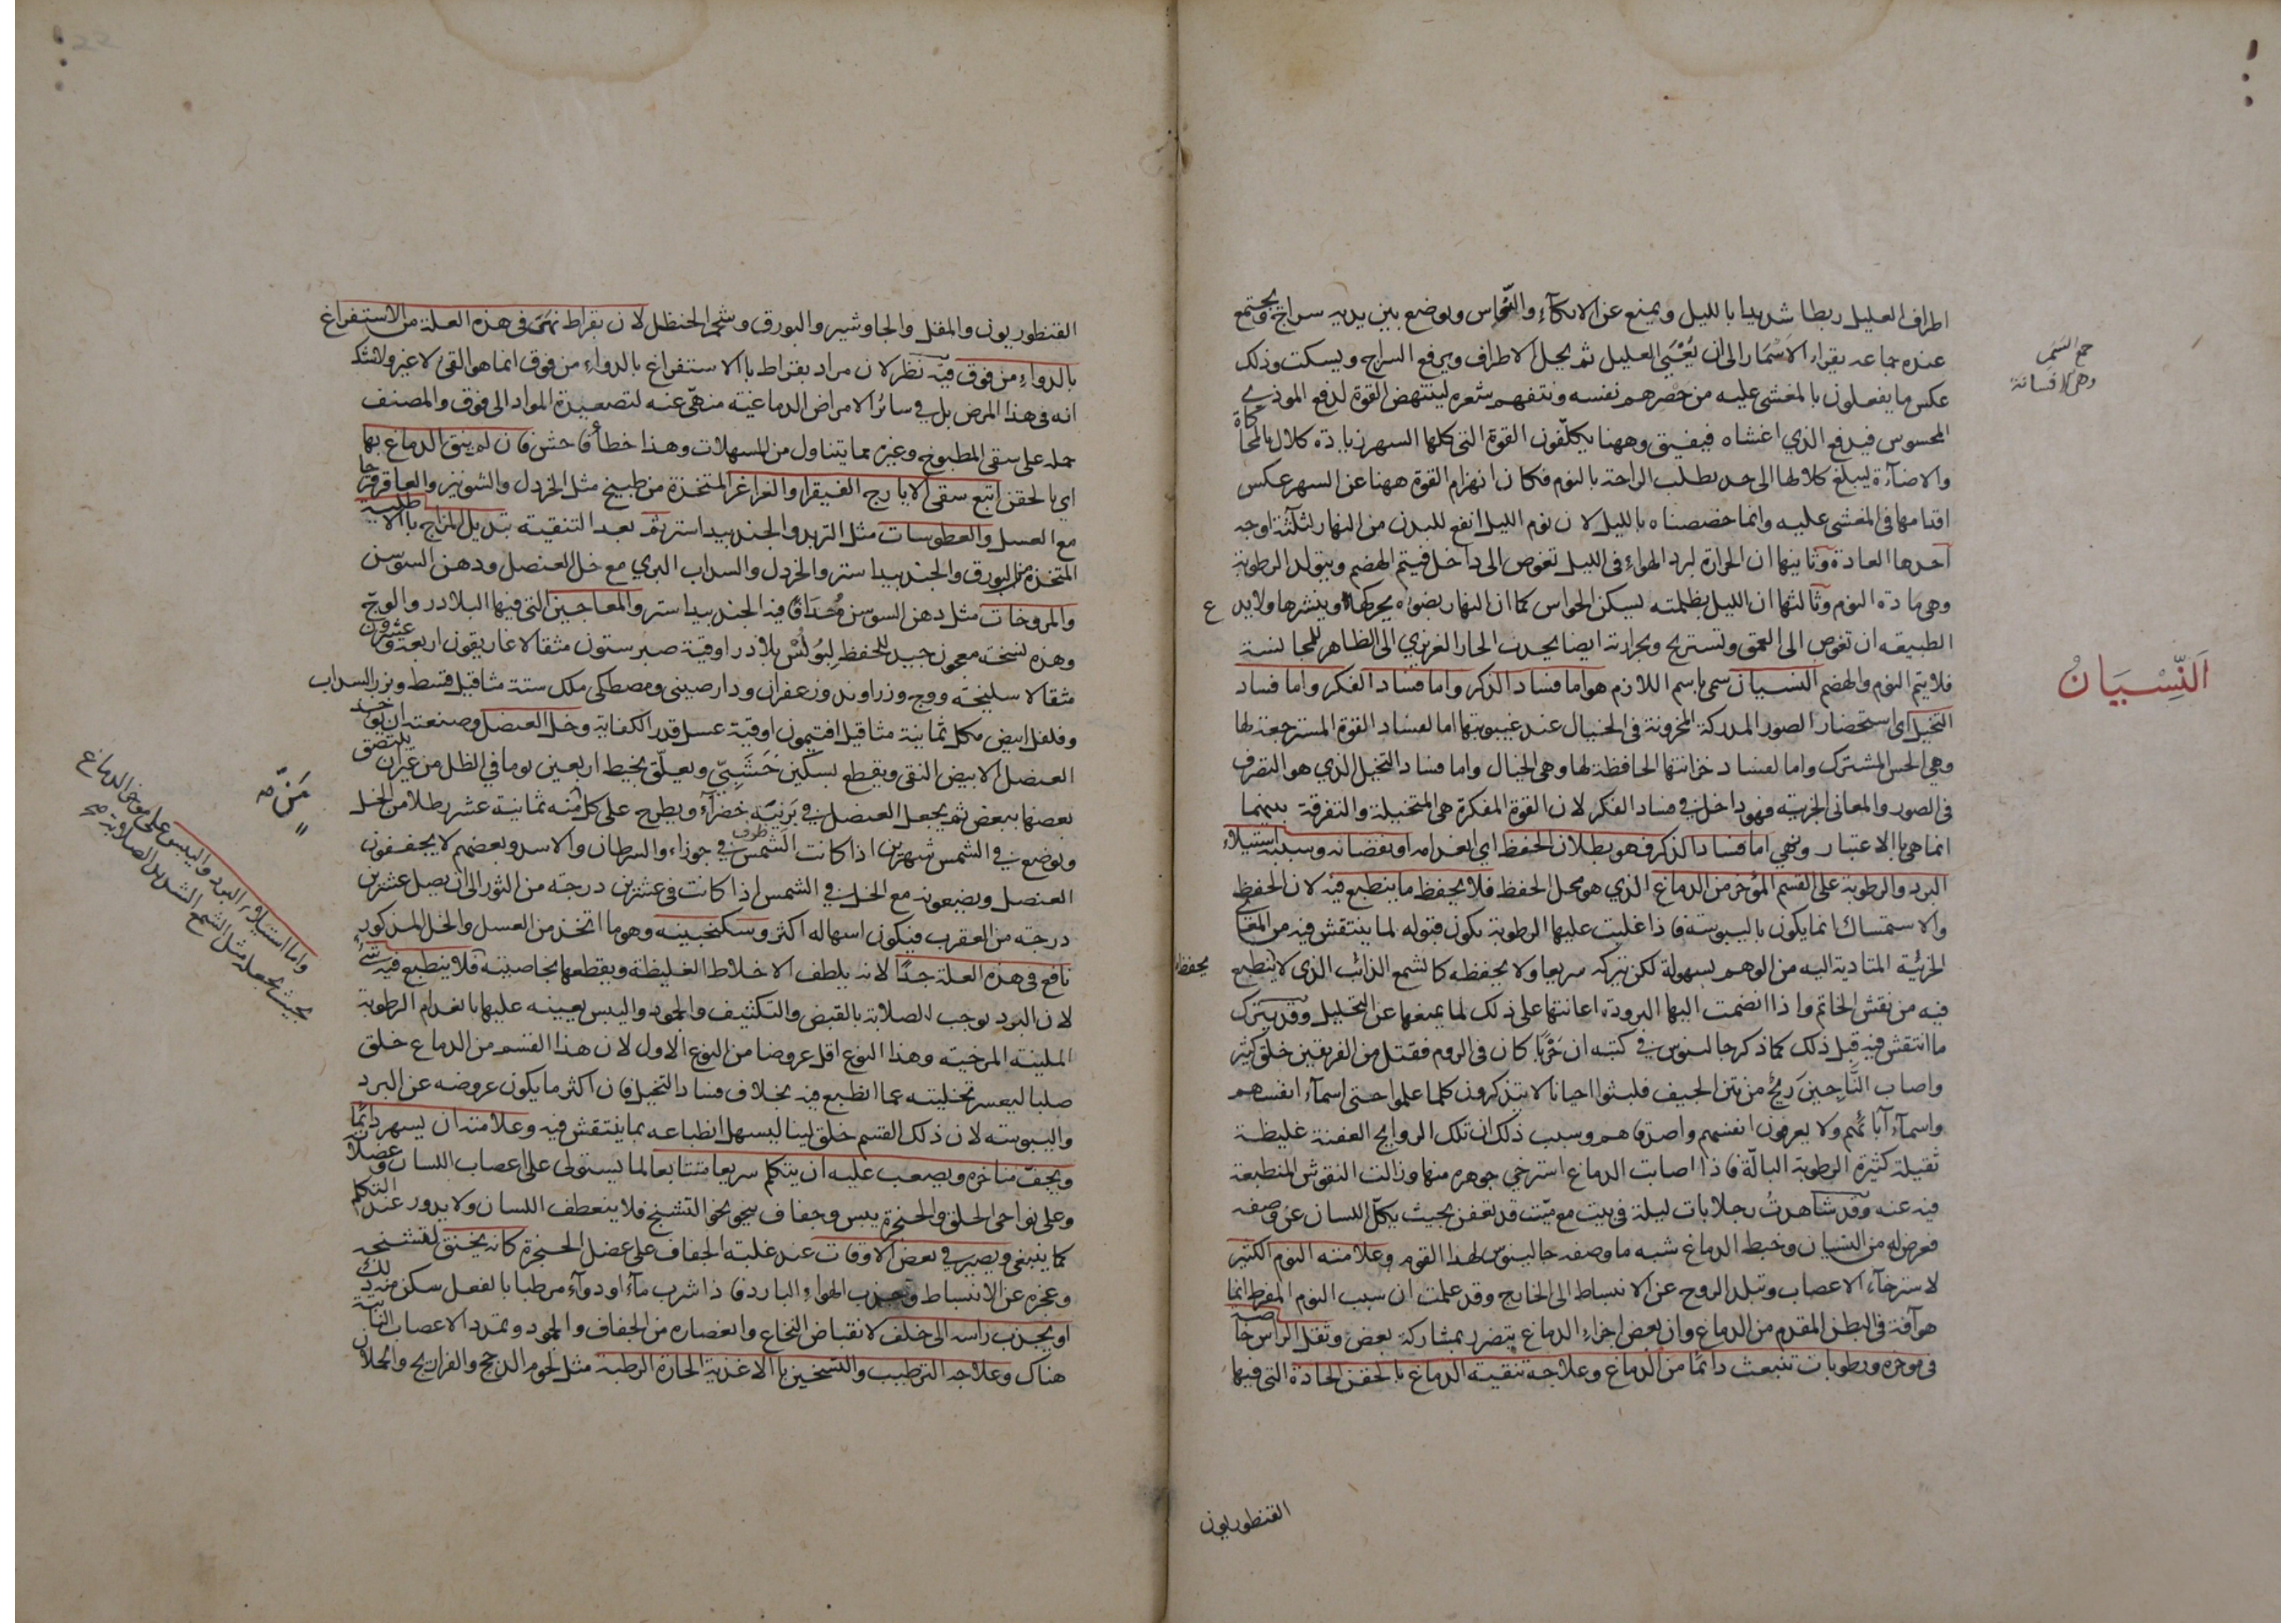 اطراف العليل ربطا شديدا بالليل ويمنع عن الاتكاء والنعاس ويوضع بين يديه سراج ويجتمع
عنده جماعه يقراء الاسمار الى ان يغشى العليل ثم يحل الاطراف ويرفع السراج ويسكت وذلك
جمع السمر
وهى الافسانة
عكس ما يفعلون بالمغشى عليه من حصرهم نفسه ونتفهم شعره لينتهض القوة لدفع الموذي
المحسوس فيدفع الذي اغشاه فيفيق وههنا يكلفون القوة التى كلها السهر زيادة كلال بالمحاكاة
والاضآءة ليبلغ كلالها الى حد يطلب الراحة بالنوم فكان انهزام القوة ههنا عن السهر عكس
اقدامها فى المغشى عليه وانما خصصناه بالليل لان نوم الليل انفع للبدن من النهار لثلثة اوجه
احدها العادة وثانيها ان الحرارة لبرد الهواء فى الليل تغوص الى داخل فيتم الهضم ويتولد الرطوبة
وهى مادة النوم وثالثها ان الليل بظلمته يسكن الحواس كما ان النهار بضوءه يحركها وينشرها ولا يدع
الطبيعه ان تغوص الى العمق وتستريح وبحرارته ايضا يجذب الحار الغريزي الى الظاهر للمجانسة
اَلنِّسْيَانُ
فلا يتم النوم والهضم النسيان سمى باسم اللازم هو اما فساد الذكر واما فساد الفكر واما فساد
التخيل اى استحضار الصور المدركة المخزونة فى الخيال عند غيبوبتها اما لفساد القوة المسترجعة لها
وهى الحس المشترك واما لفساد خزانتها الحافظة لها وهى الخيال واما فساد التخيل الذي هو التصرف
فى الصور والمعانى الجزئيه فهو داخل في فساد الفكر لان القوة المفكرة هى المتخيلة والتفرقة بينهما
انما هى بالاعتبار وهي اما فساد الذكر فهو بطلان الحفظ اى انعدامه او نقصانه وسببه استيلاء
البرد والرطوبة على القسم المؤخر من الدماغ الذي هو محل الحفظ فلا يحفظ ما ينطبع فيه لان الحفظ
والاستمساك انما يكون باليبوسة فاذا غلبت عليها الرطوبة يكون قبوله لما ينتقش فيه من المعانى
الجزئية المتادية اليه من الوهم بسهولة لكن يتركه سريعا ولا يحفظه كالشمع الذائب الذى لا ينطبع
يحفظ
فيه من نقش الخاتم واذا انضمت اليها البرودة اعانتها على ذلك لما يمنعها عن التحليل وقد يترك
ما انتقش فيه قبل ذلك كما ذكر جالينوس في كتبه ان حَرْبًا كان فى الروم فقتل من الفريقين خلق كثير
واصاب الناجين ريحٌ من نتن الجيف فلبثوا احيانا لا يتذكرون كلما علموا حتى اسمآء انفسهم
واسمآء آبائهم ولا يعرفون انفسهم واصدقاءهم وسبب ذلك ان تلك الروايح العفنة غليظة
ثقيلة كثيرة الرطوبة البالّة فاذا اصابت الدماغ استرخي جوهره منها وزالت النقوش المنطبعة
فيه عنه وقد شاهدتُ رجلا بات ليلة فى بيت مع ميّت قد تعفن بحيث يكلّ اللسان عن وصفه
فعرض له من النسيان وخبط الدماغ شبه ما وصفه جالينوس لهذا القوم وعلامته النوم الكثير
لاسترخآء الاعصاب وتبلد الروح عن الانبساط الى الخارج وقد علمت ان سبب النوم المفرط انما
هو آفة فى البطن المقدم من الدماغ وان بعض اجزاء الدماغ يتضرر بمشاركة بعض وثقل الراس خاصة
فى موخره ورطوبات تنبعث دائما من الدماغ وعلاجه تنقية الدماغ بالحقن الحادة التى فيها
القنطوريون
القنطوريون والمقل والجاوشير والبورق وشحم الحنظل لان بقراط نهى فى هذه العلة من الاستفراغ
بالدواء من فوق فيه نظر لان مراد بقراط بالاستفراغ بالدواء من فوق انما هو القى لا غير ولا شك
انه فى هذا المرض بل في سائر الامراض الدماغية منهى عنه لتصعيده المواد الى فوق والمصنف
حمله على سقى المطبوخ وغيره مما يتناول من المسهلات وهذا خطأ فاحش فان لم ينق الدماغ بها
اى بالحقن اتبع سقى الايارج الفيقرا والغراغر المتخذة من طبيخ مثل الخردل والشونيز والعاقرقرحا
مع العسل والعطوسات مثل التربد والجندبيداستر ثم بعد التنقية تبديل المزاج بالاطلية
المتخذة من البورق والجندبيداستر والخردل والسداب البري مع خل العنصل ودهن السوسن
والمروخات مثل دهن السوسن مُدَافًا فيه الجندبيداستر والمعاجين التى فيها البلادر والوج
وهذه نسخة معجون جيد للحفظ لبُولُسْ بلادر اوقية صبر ستون مثقالا غاريقون اربعة وعشرون
مثقالا سليخة ووج وزراوند وزعفران ودارصينى ومصطكى من كل ستة مثاقيل قسط وبزر السداب
وفلفل ابيض من كل ثمانية مثاقيل افتيمون اوقية عسل قدر الكفاية وخل العنصل وصنعته ان يوخذ
العنصل الابيض النقى ويقطع بسكين خَشَبِيّ ويعلّق بخيط اربعين يوما في الظل من غير ان يلتصق
بعضها ببعض ثم يجعل العنصل في برنيّة خضرآء ويطرح على كل مَنّه ثمانية عشر رطلا من الخل
مَنّ مه
ويوضع في الشمس شهرين اذا كانت الشمس في طرف جوزاء والسرطان والاسد وبعضهم لا يجففون
العنصل ويضعونه مع الخل في الشمس اذا كانت فى عشرين درجة من الثور الى ان يصل عشرين
درجة من العقرب فيكون اسهاله اكثر وسكنجبينه وهو ما اتخذ من العسل والخل المذكور
نافع فى هذه العلة جدًا لانه يلطف الاخلاط الغليظة ويقطعها بخاصيته فلا ينطبع فيه شئ
واما استيلاء البرد واليبس على موخر الدماغ
بحيث يجعله مثل الشمع الشديد الصلابة صح
لان البرد يوجب الصلابة بالقبض والتكثيف والجمود واليبس يعينه عليها بانعدام الرطوبة
الملينة المرخية وهذا النوع اقل عروضا من النوع الاول لان هذا القسم من الدماغ خلق
صلبا ليعسر تخليته عما انطبع فيه بخلاف فساد التخيل فان اكثر ما يكون عروضه عن البرد
واليبوسة لان ذلك القسم خلق لينا ليسهل انطباعه بما ينتقش فيه وعلامته ان يسهر دائما
ويجف مناخره ويصعب عليه ان يتكلم سريعا متتابعا لما يستولى على اعصاب اللسان وعضلاته
وعلى نواحى الحلق والحنجرة يبس وجفاف ينحو نحو التشنج فلا ينعطف اللسان ولا يدور عند التكلم
كما ينبغى ويصير في بعض الاوقات عند غلبة الجفاف على عضل الحنجرة كانه يختنق لتشنجه
وعجزه عن الانبساط وجذب الهواء البارد فاذا شرب مآء او دوآء مرطبا بالفعل سكن منه ذلك
او يجذب راسه الى خلف لانقباض النخاع وانعصاره من الجفاف والجمود وتمدد الاعصاب النابتة
هناك وعلاجه الترطيب والتسخين بالاغذية الحارة الرطبة مثل لحوم الدجج والفراريج والحملان